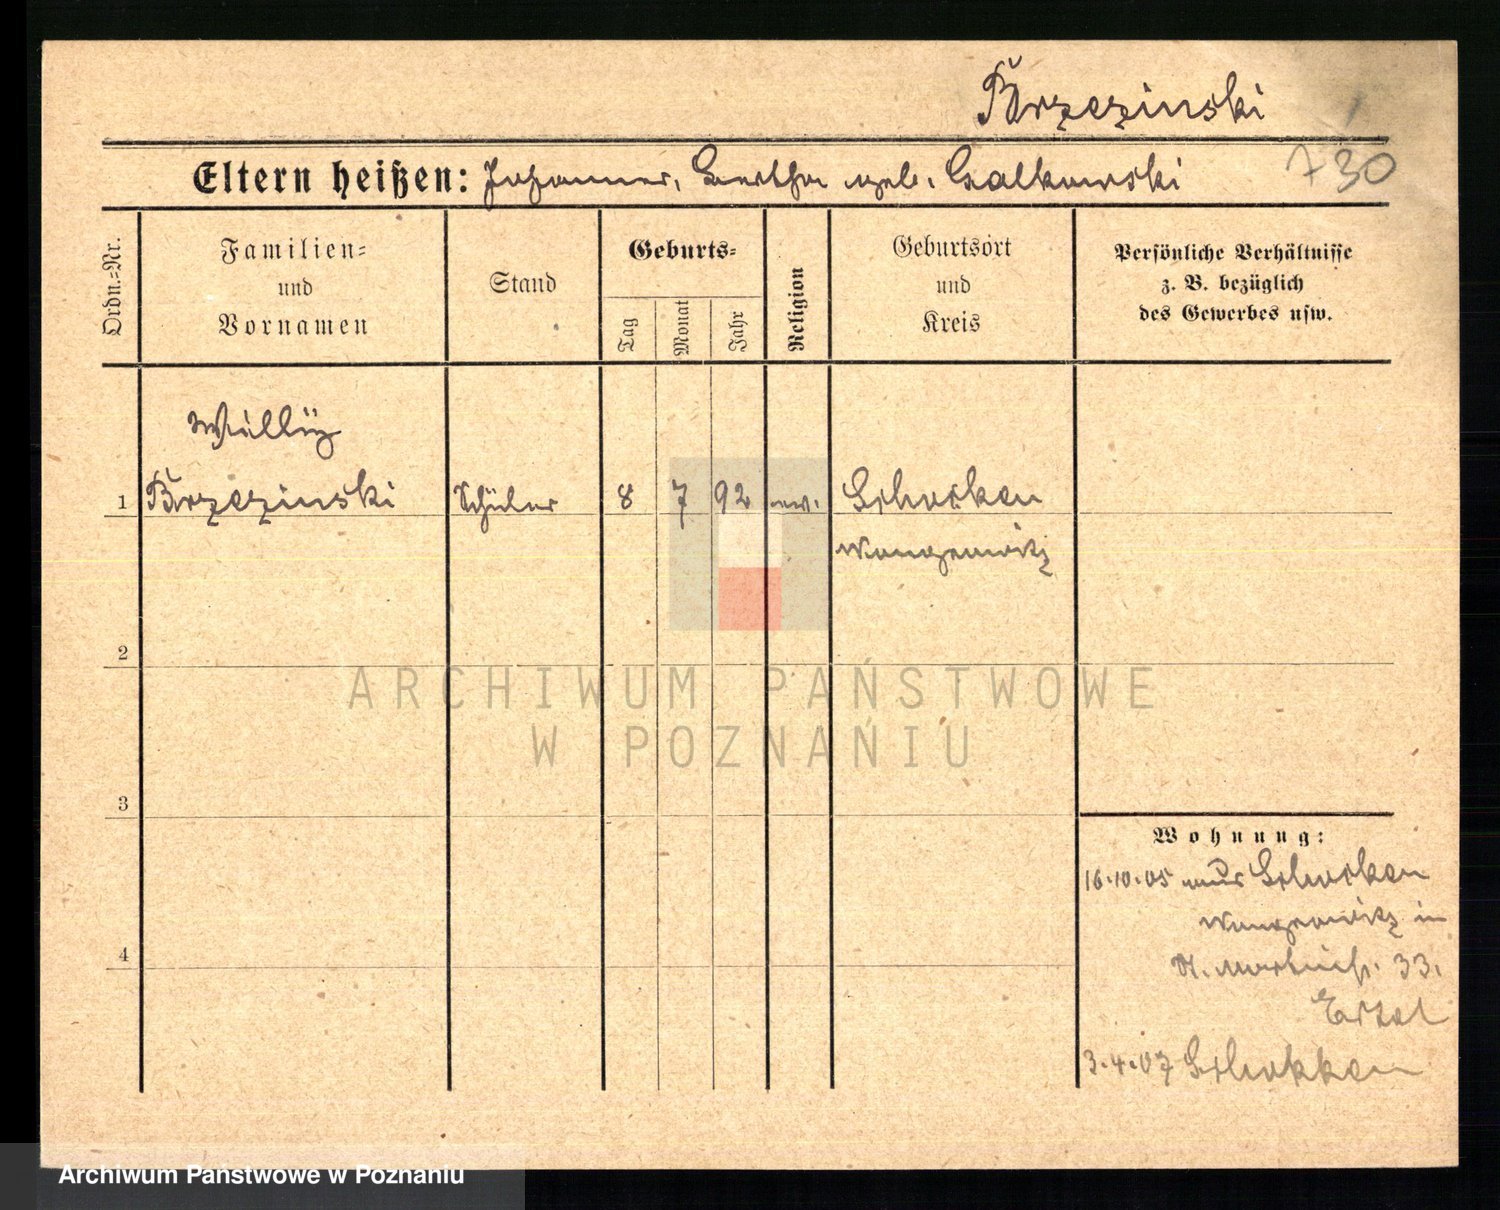 Brzezinski
730
Eltern heißen: Johannes, Bertha geb. Galkowski
Ordn.=Nr.
Familien=
und
Vornamen
Stand
Geburts=
Tag
Monat
Jahr
Religion
Geburtsort
und
Kreis
Persönliche Verhältnisse
z. B. bezüglich
des Gewerbes usw.
Willÿ
1 Brzezinski Schüler 8 7 92 ev. Schocken
Wongrowitz
2
ARCHIWUM PAŃSTWOWE
W POZNANIU
3
Wohnung:
16.10.05 aus Schocken
Wongrowitz in
St. Martinstr. 33.
4
3.4.07 Schokken
Archiwum Państwowe w Poznaniu